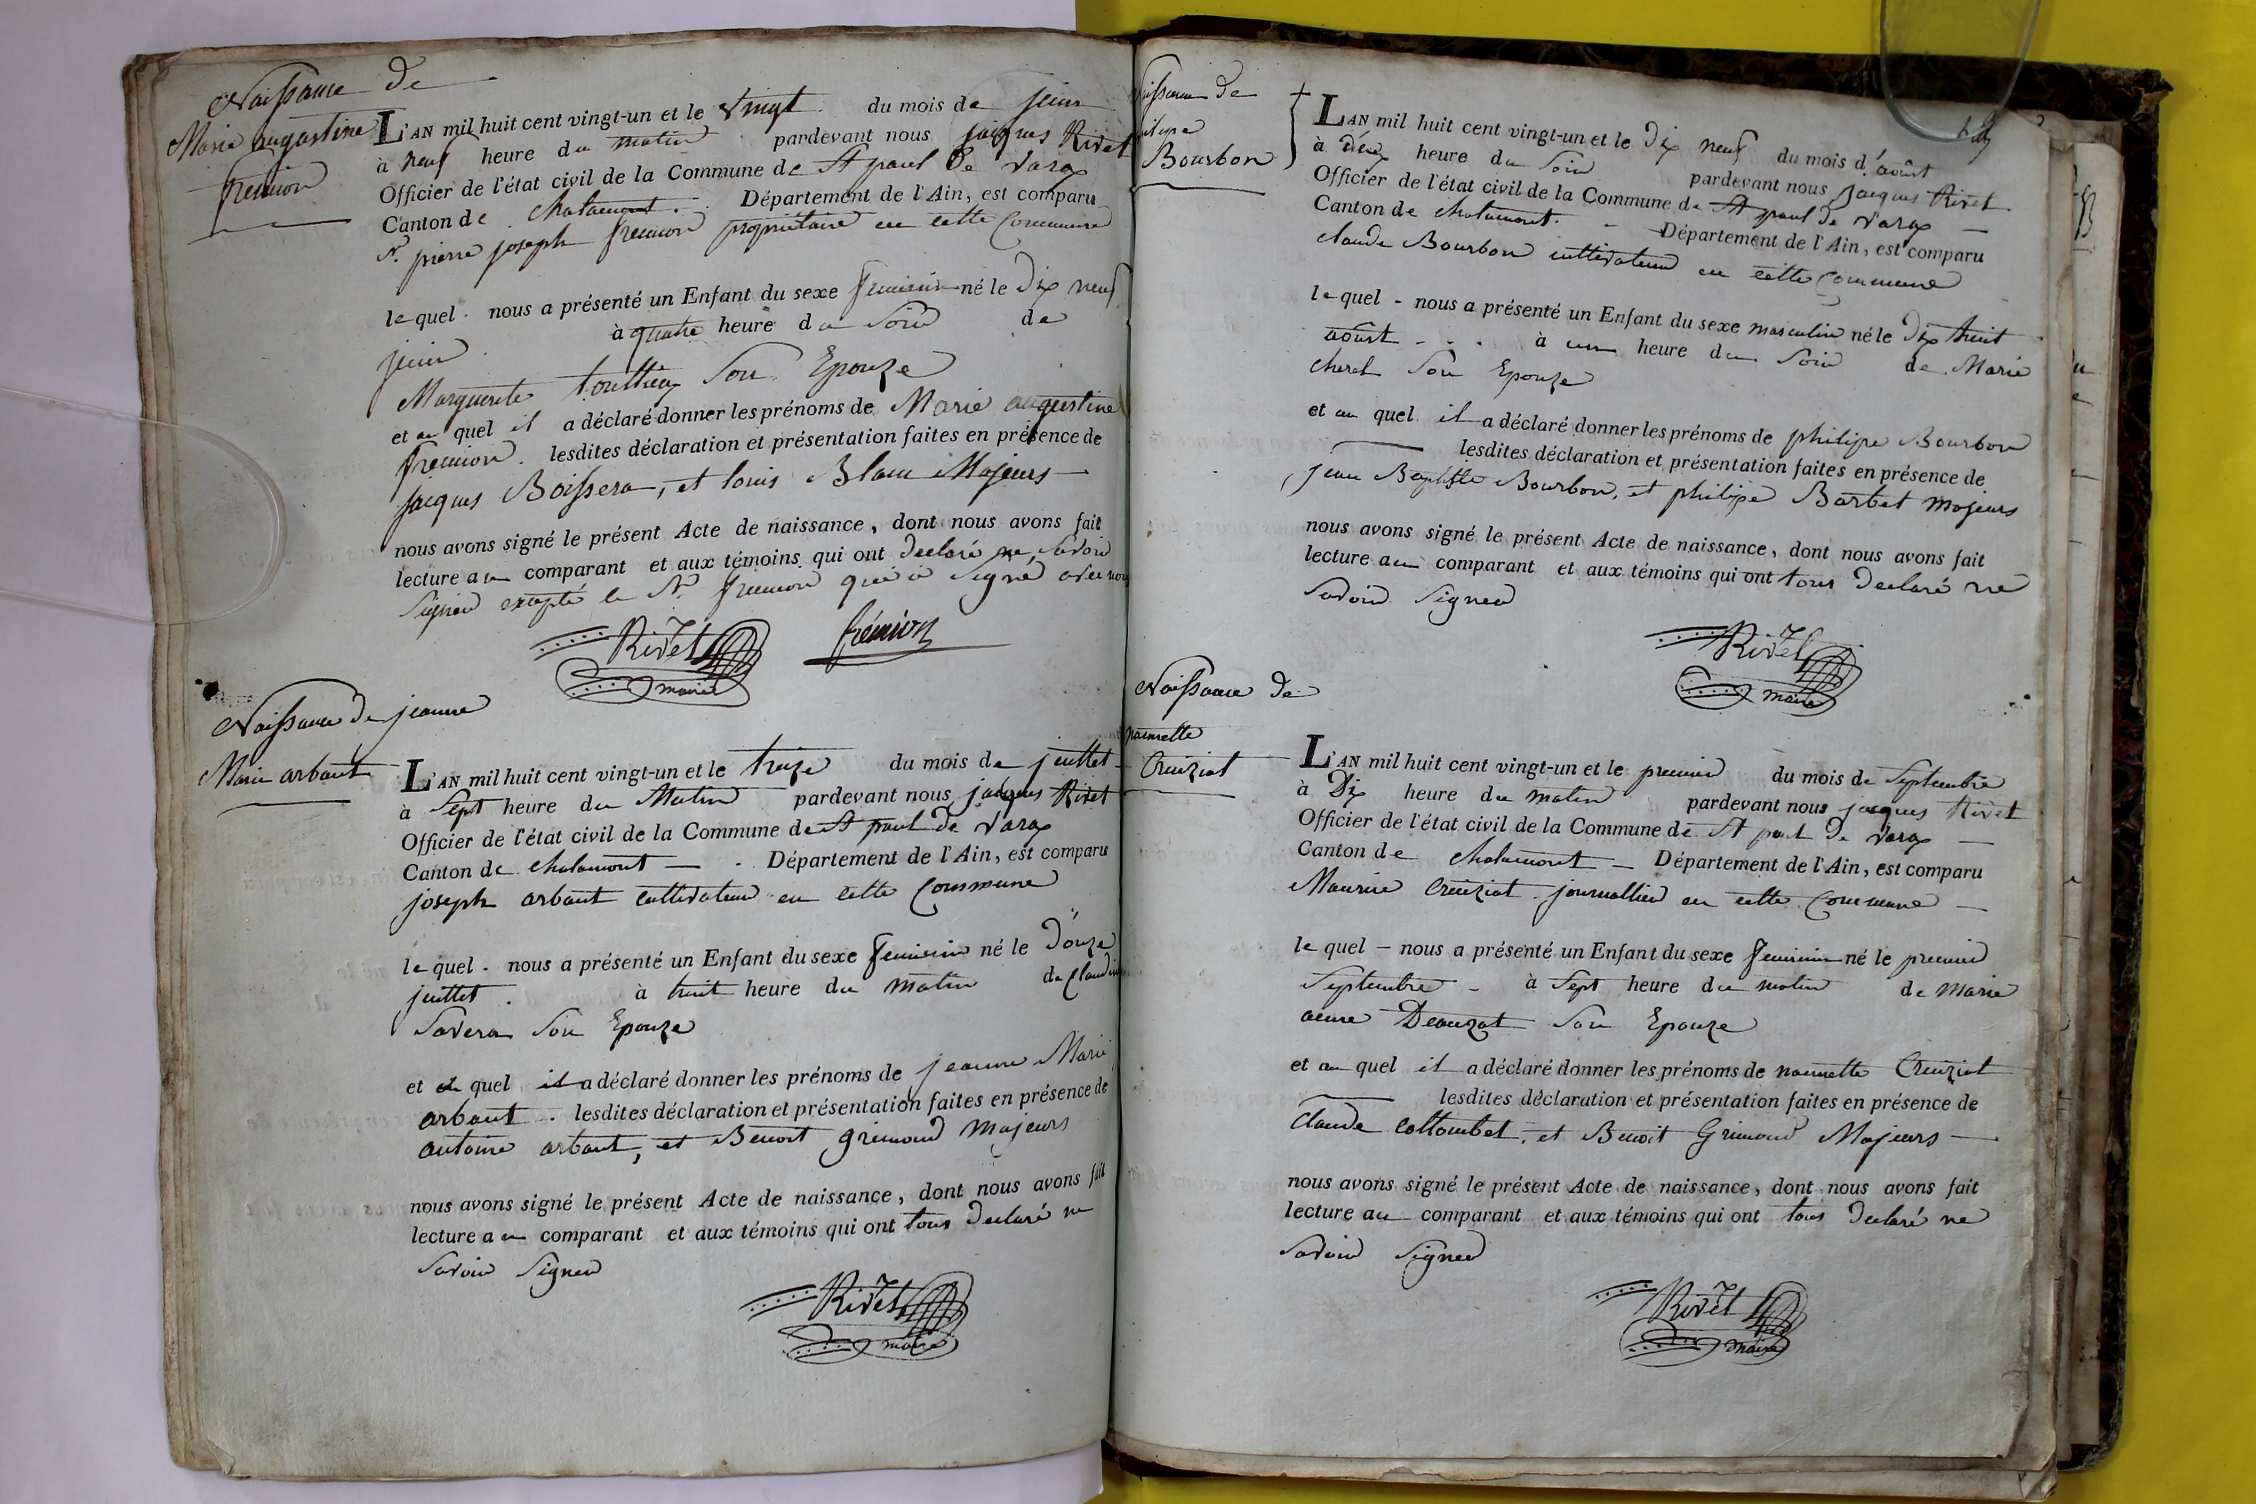 Naissance de
Marie augustine
fremion
L'AN mil huit cent vingt-un et le vingt du mois de juin
à neuf heure du matin pardevant nous jacques Rivet
Officier de l'état civil de la Commune de St paul de varax
Canton de chalamont. Département de l'Ain, est comparu
Sr. pierre joseph fremion propriétaire en cette Commune
le quel. nous a présenté un Enfant du sexe feminin né le dix neuf
juin à quatre heure du Soir de
Marguerite touthiex Son Epouze
et au quel il a déclaré donner les prénoms de Marie augustine
fremion. lesdites déclaration et présentation faites en présence de
jacques Boissera, et louis Blanc Majeurs
nous avons signé le présent Acte de naissance, dont nous avons fait
lecture au comparant et aux témoins qui ont declaré ne Savoir
Signer excepté le Sr. fremion qui a Signé avec nous
Rivet frémion
maire
Naissance de jeanne
Marie arbant
L'AN mil huit cent vingt-un et le treize du mois de juillet
à Sept heure du Matin pardevant nous jacques Rivet
Officier de l'état civil de la Commune de St paul de varax
Canton de chalamont Département de l'Ain, est comparu
joseph arbant cultivateur en cette Commune
le quel. nous a présenté un Enfant du sexe feminin né le douze
juillet. à huit heure du matin de Claudine
Savera Son Epouze
et au quel il a déclaré donner les prénoms de jeanne Marie
arbant. lesdites déclaration et présentation faites en présence de
antoine arbant, et Benoit grimoud Majeurs
nous avons signé le présent Acte de naissance, dont nous avons fait
lecture au comparant et aux témoins qui ont tous declaré ne
Savoir Signer
Rivet
maire
Naissance de
philipe
Bourbon
L'AN mil huit cent vingt-un et le dix neuf du mois d'août
à deux heure du Soir pardevant nous jacques Rivet
Officier de l'état civil de la Commune de St paul de varax
Canton de chalamont. Département de l'Ain, est comparu
claude Bourbon cultivateur en cette Commune
le quel - nous a présenté un Enfant du sexe masculin né le dix huit
août à une heure du Soir de Marie
cheret Son Epouze
et au quel il a déclaré donner les prénoms de philipe Bourbon
lesdites déclaration et présentation faites en présence de
jean Baptiste Bourbon, et philipe Barbet majeurs
nous avons signé le présent Acte de naissance, dont nous avons fait
lecture au comparant et aux témoins qui ont tous declaré ne
Savoir Signer
Rivet
maire
Naissance de
nannette
Creuziat
L'AN mil huit cent vingt-un et le premier du mois de Septembre
à Dix heure du matin pardevant nous jacques Rivet
Officier de l'état civil de la Commune de St paul de varax
Canton de chalamont Département de l'Ain, est comparu
Maurice Creuziat journallier en cette Commune
le quel - nous a présenté un Enfant du sexe feminin né le premier
Septembre - à Sept heure du matin de marie
anne Deauzat Son Epouze
et au quel il a déclaré donner les prénoms de nannette Creuziat
lesdites déclaration et présentation faites en présence de
claude collombet, et Benoit Grimoud Majeurs
nous avons signé le présent Acte de naissance, dont nous avons fait
lecture au comparant et aux témoins qui ont tous declaré ne
Savoir Signer
Rivet
maire